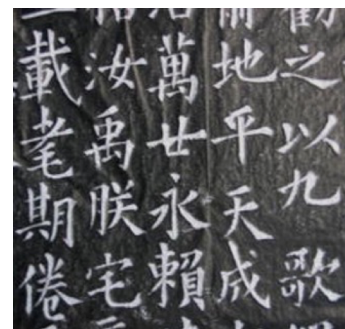 勸之以九歌
地平天成
萬世永賴
汝禹朕宅
載耄期倦